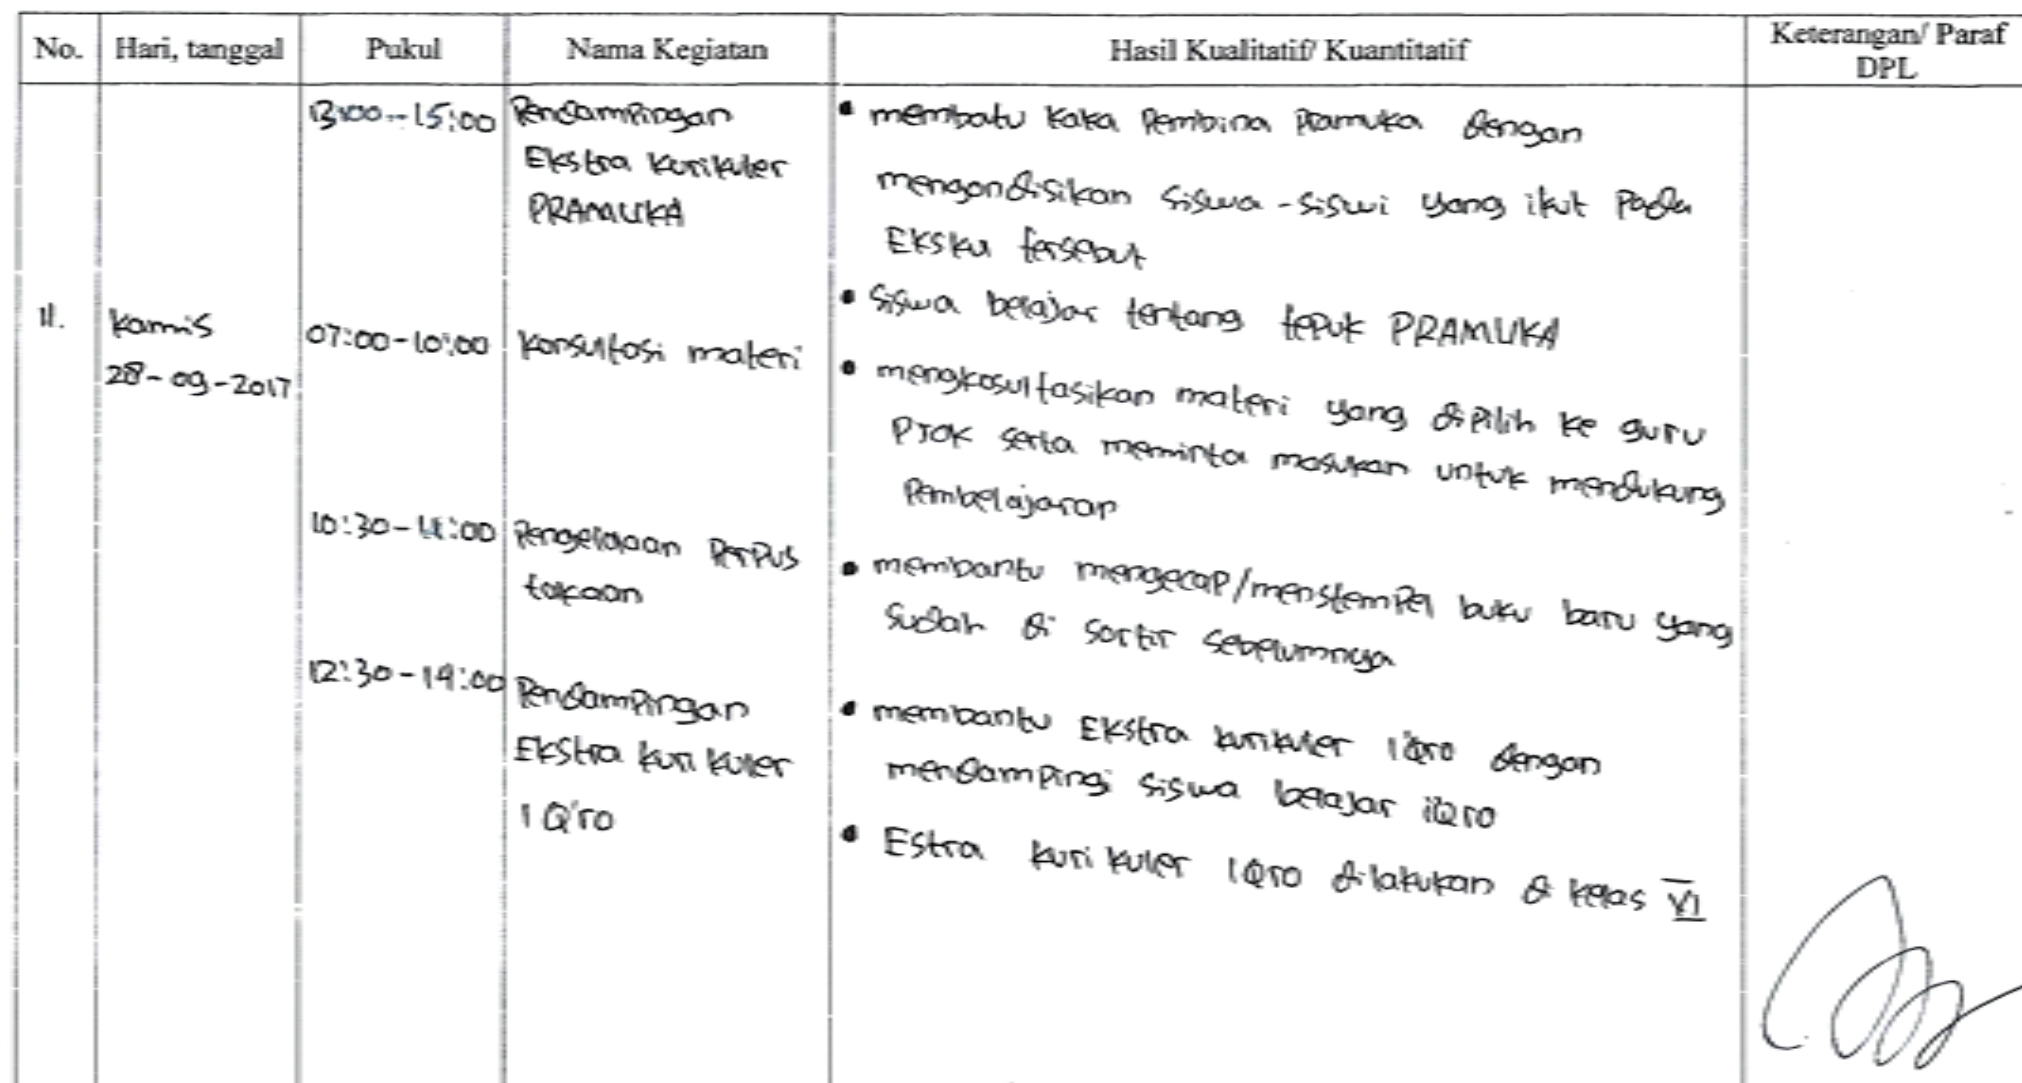 No.
Hari, tanggal
Pukul
Nama Kegiatan
Hasil Kualitatif/ Kuantitatif
Keterangan/ Paraf
DPL
13:00--15:00
Pendampingan
Ekstra kurikuler
PRAMUKA
• membatu kaka Pembina Pramuka dengan
mengondisikan siswa-siswi yang ikut Pada
Eksku tersebut
• siswa belajar tentang tepuk PRAMUKA
11.
Kamis
28-09-2017
07:00-10:00
konsultasi materi
• mengkosultasikan materi yang diPilih ke guru
PJOK serta meminta masukan untuk mendukung
Pembelajaran
10:30-11:00
Pengelolaan PerPus
takaan
• membantu mengecaP/menstemPel buku baru yang
sudah di sortir sebelumnya
12:30-14:00
PendamPingan
Ekstra kuri kuler
IQ'ro
• membantu Ekstra kurikuler I'Qro dengan
mendamPingi siswa belajar iQro
• Estra kuri kuler IQro dilakukan di kelas VI